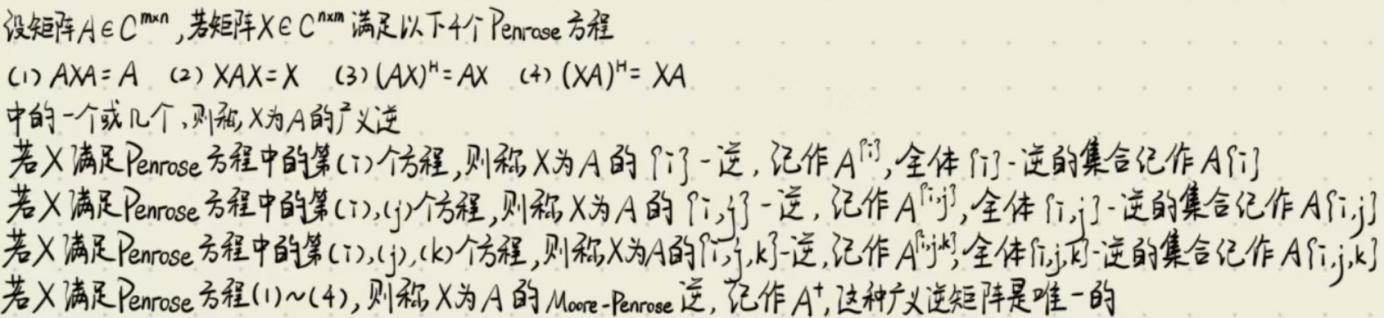 设矩阵A∈C^{m×n},若矩阵X∈C^{n×m}满足以下4个Penrose方程
(1) AXA=A (2) XAX=X (3) (AX)^H=AX (4) (XA)^H=XA
中的一个或几个,则称X为A的广义逆
若X满足Penrose方程中的第(i)个方程,则称X为A的{i}-逆,记作A^{{i}},全体{i}-逆的集合记作A{i}
若X满足Penrose方程中的第(i),(j)个方程,则称X为A的{i,j}-逆,记作A^{{i,j}},全体{i,j}-逆的集合记作A{i,j}
若X满足Penrose方程中的第(i),(j),(k)个方程,则称X为A的{i,j,k}-逆,记作A^{{i,j,k}},全体{i,j,k}-逆的集合记作A{i,j,k}
若X满足Penrose方程(1)~(4),则称X为A的Moore-Penrose逆,记作A^+,这种广义逆矩阵是唯一的